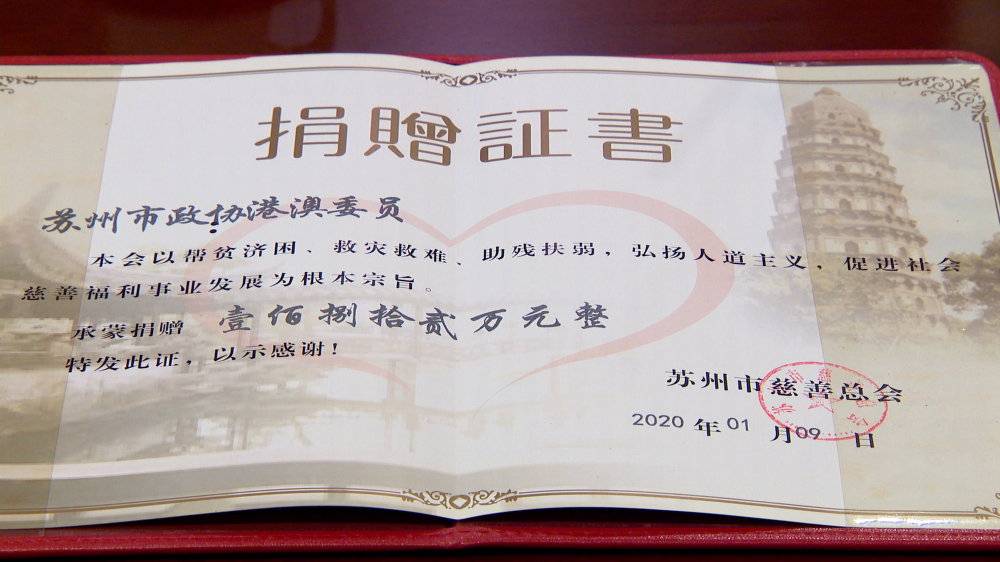 捐贈証書
苏州市政协港澳委员
本会以帮贫济困、救灾救难、助残扶弱，弘扬人道主义，促进社会
慈善福利事业发展为根本宗旨。
承蒙捐赠 壹佰捌拾贰万元整
特发此证，以示感谢！
苏州市慈善总会
2020 年 01 月 09 日